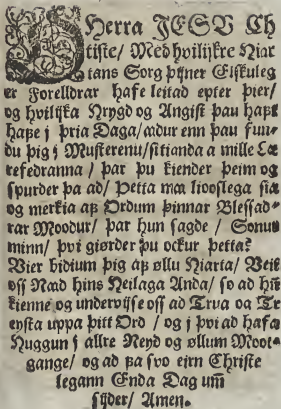 O Herra JESV Ch
riste/ Med hvilijkre Hiar
tans Sorg þijner Elskuleg
er Forelldrar hafe leitad epter þier/
og hvilijka Hrygd og Angist þau haft
hafe i þria Daga/ ædur enn þau fun-
du þig i Musterenu/ sitianda a mille Læ
refedranna / þar þu kiender þeim og
spurder þa ad/ Þetta maa liooslega siæ
og merkia aß Ordum þinnar Blessad-
rar Moodur/ þar hun sagde / Sonur
minn/ þvi giørder þu ockur þetta?
Vier bidium þig aß øllu Hiarta/ Veit
oss Naad þins Heilaga Anda/ so ad hñ
kienne og undervijse oss ad Trua oa Tr
eysta uppa þitt Ord / og i þvi ad hafa
Huggun i allre Neyd og øllum Moot-
gange/ og ad fa svo eirn Christe
legann Enda Dag um̃
sijder/ Amen.